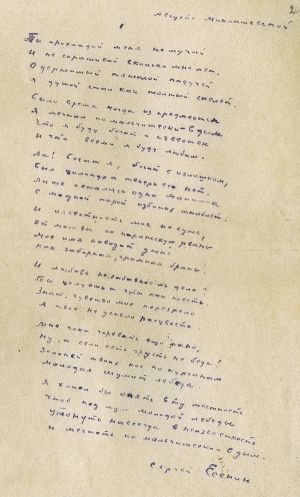 2
Августе Миклашевской
Ты прохладой меня не мучай
И не спрашивай сколько мне лет.
Одержимый тяжелой падучей
Я душой стал как желтый скелет.
Было время когда из предместья
Я мечтал по мальчишески в дым
Что я буду богат и известен
И что всеми я буду любим.
Да! Богат я, богат с излишком,
Был цилиндр а теперь его нет.
Лишь осталась одна манишка
С модной парой избитых штиблет.
И известность моя не хуже,
От москвы по парижскую рвань
Мое имя наводит ужас
Как заборная, громкая брань.
И любовь не забавное ль дело?
Ты целуешь а губы как жесть.
Знаю, чувство мое перезрело
А твое не сумеет расцвесть.
Мне пока горевать еще рано,
Ну, а если есть грусть не беда!
Золотей твоих кос по курганам
Молодая шумит лебеда.
Я хотел бы опять в ту местность
Чтоб под шум молодой лебеды
Утонуть навсегда в неизвестность
И мечтать по мальчишески в дым.
Сергей Есенин